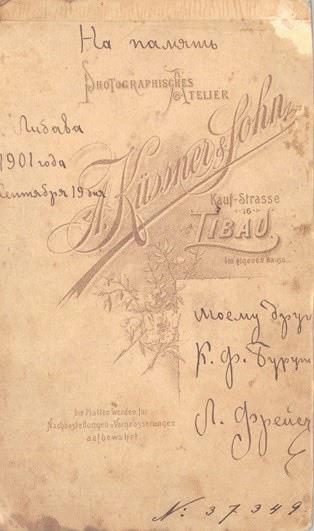 На память
PHOTOGRAPHISCHES
ATELIER
Либава
1901 года
Сентября 19 дня
A. Küssner & Sohn
Kauf-Strasse
16
LIBAU.
Im eigenen Hause.
Моему друг
К. Ф. Буруш
Л. Фрейс
Die Platten werden für
Nachbestellungen u. Vergrösserungen
aufbewahrt
№ 37349.